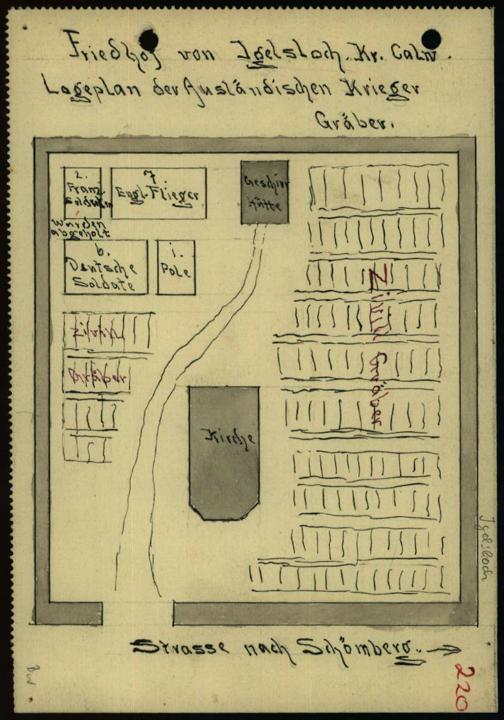 Friedhof von Igelsloch. Kr. Calw.
Lageplan der Ausländischen Krieger
Gräber.
2.
Franz.
Soldaten
wurden
abgeholt
7.
Engl. Flieger
Geschirr
Hütte
6.
Deutsche
Soldate
1.
Pole
Zivil
Gräber
Zivil Gräber
Kirche
Igelsloch
Strasse nach Schömberg. →
220